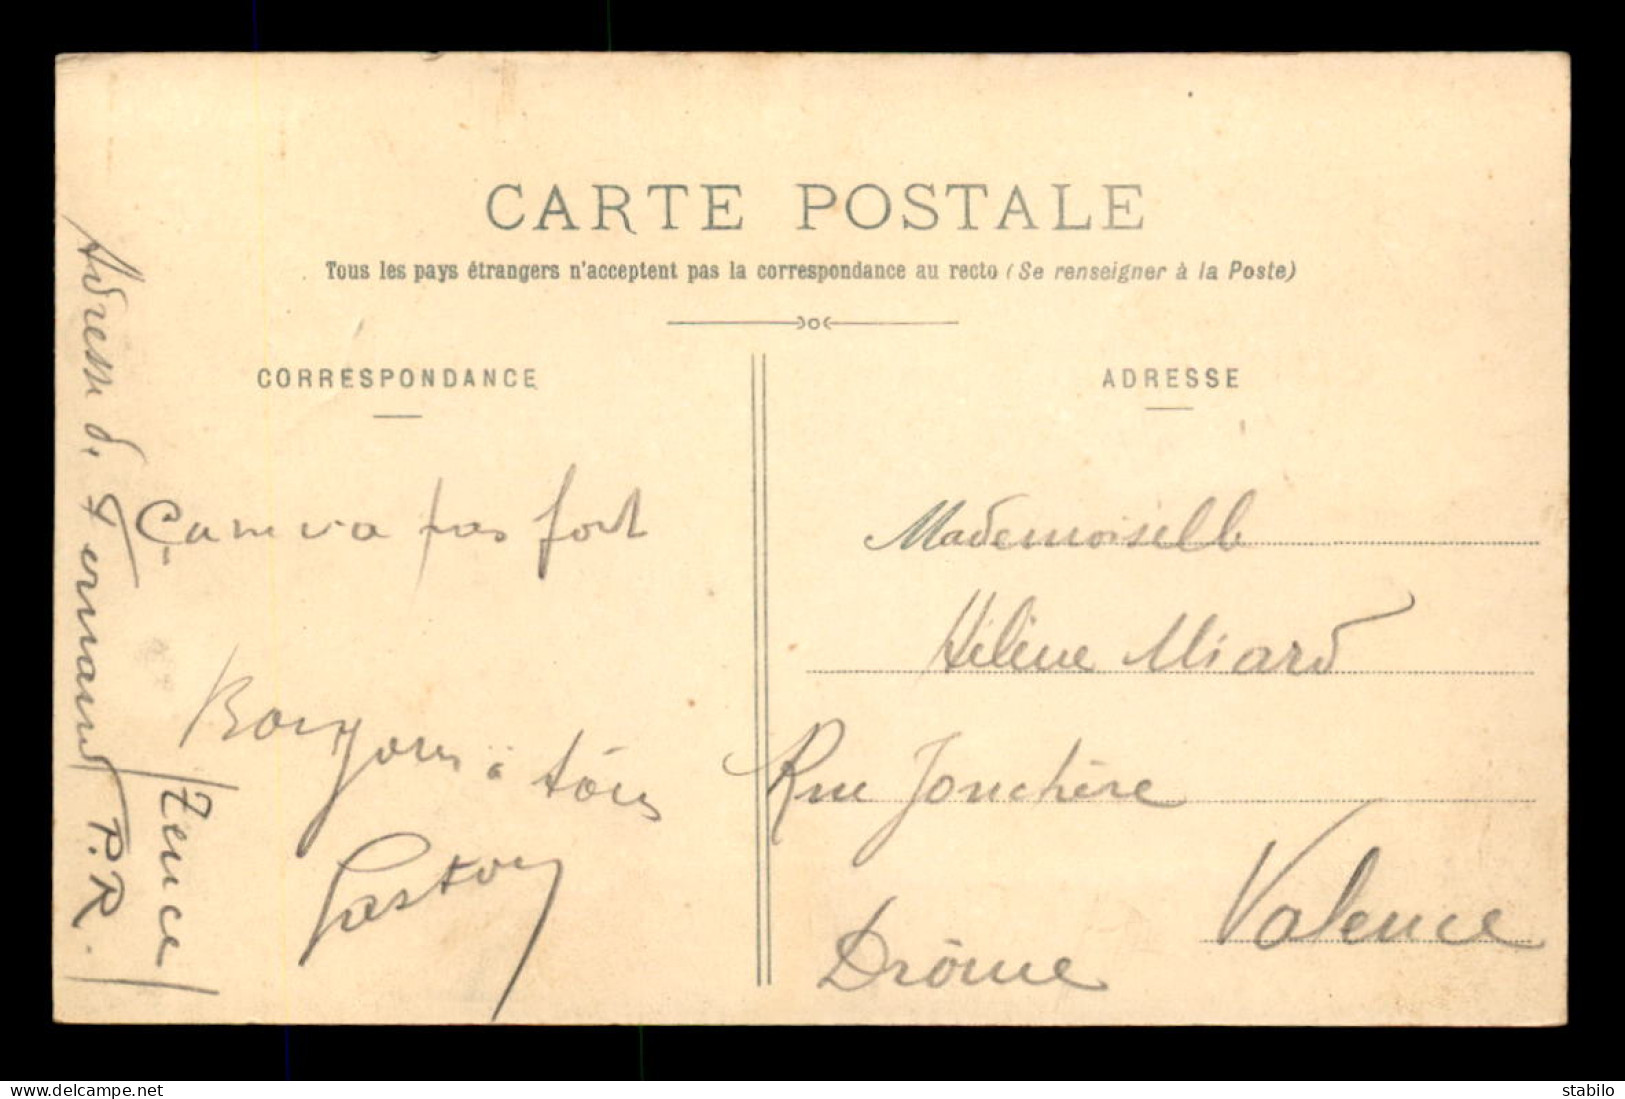 CARTE POSTALE
Tous les pays étrangers n'acceptent pas la correspondance au recto (Se renseigner à la Poste)
CORRESPONDANCE
Ça ne va pas fort
Bonjour à tous
Gaston
Adresse de Fernand P.R.
Tence
ADRESSE
Mademoiselle
Hélène Miard
Rue Jonchère
Valence
Drôme
stabilo